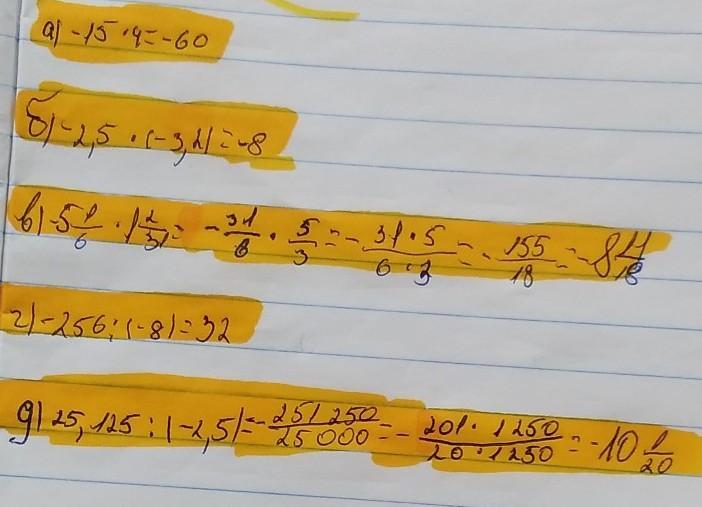 а) -15 · 4 = -60
б) -2,5 · (-3,2) = -8
в) -5 1/6 · 1 2/3 = -31/6 · 5/3 = -31·5/6·3 = -155/18 = -8 11/18
г) -256 : (-8) = 32
д) 25,125 : (-2,5) = -251250/25000 = -201·1250/20·1250 = -10 1/20